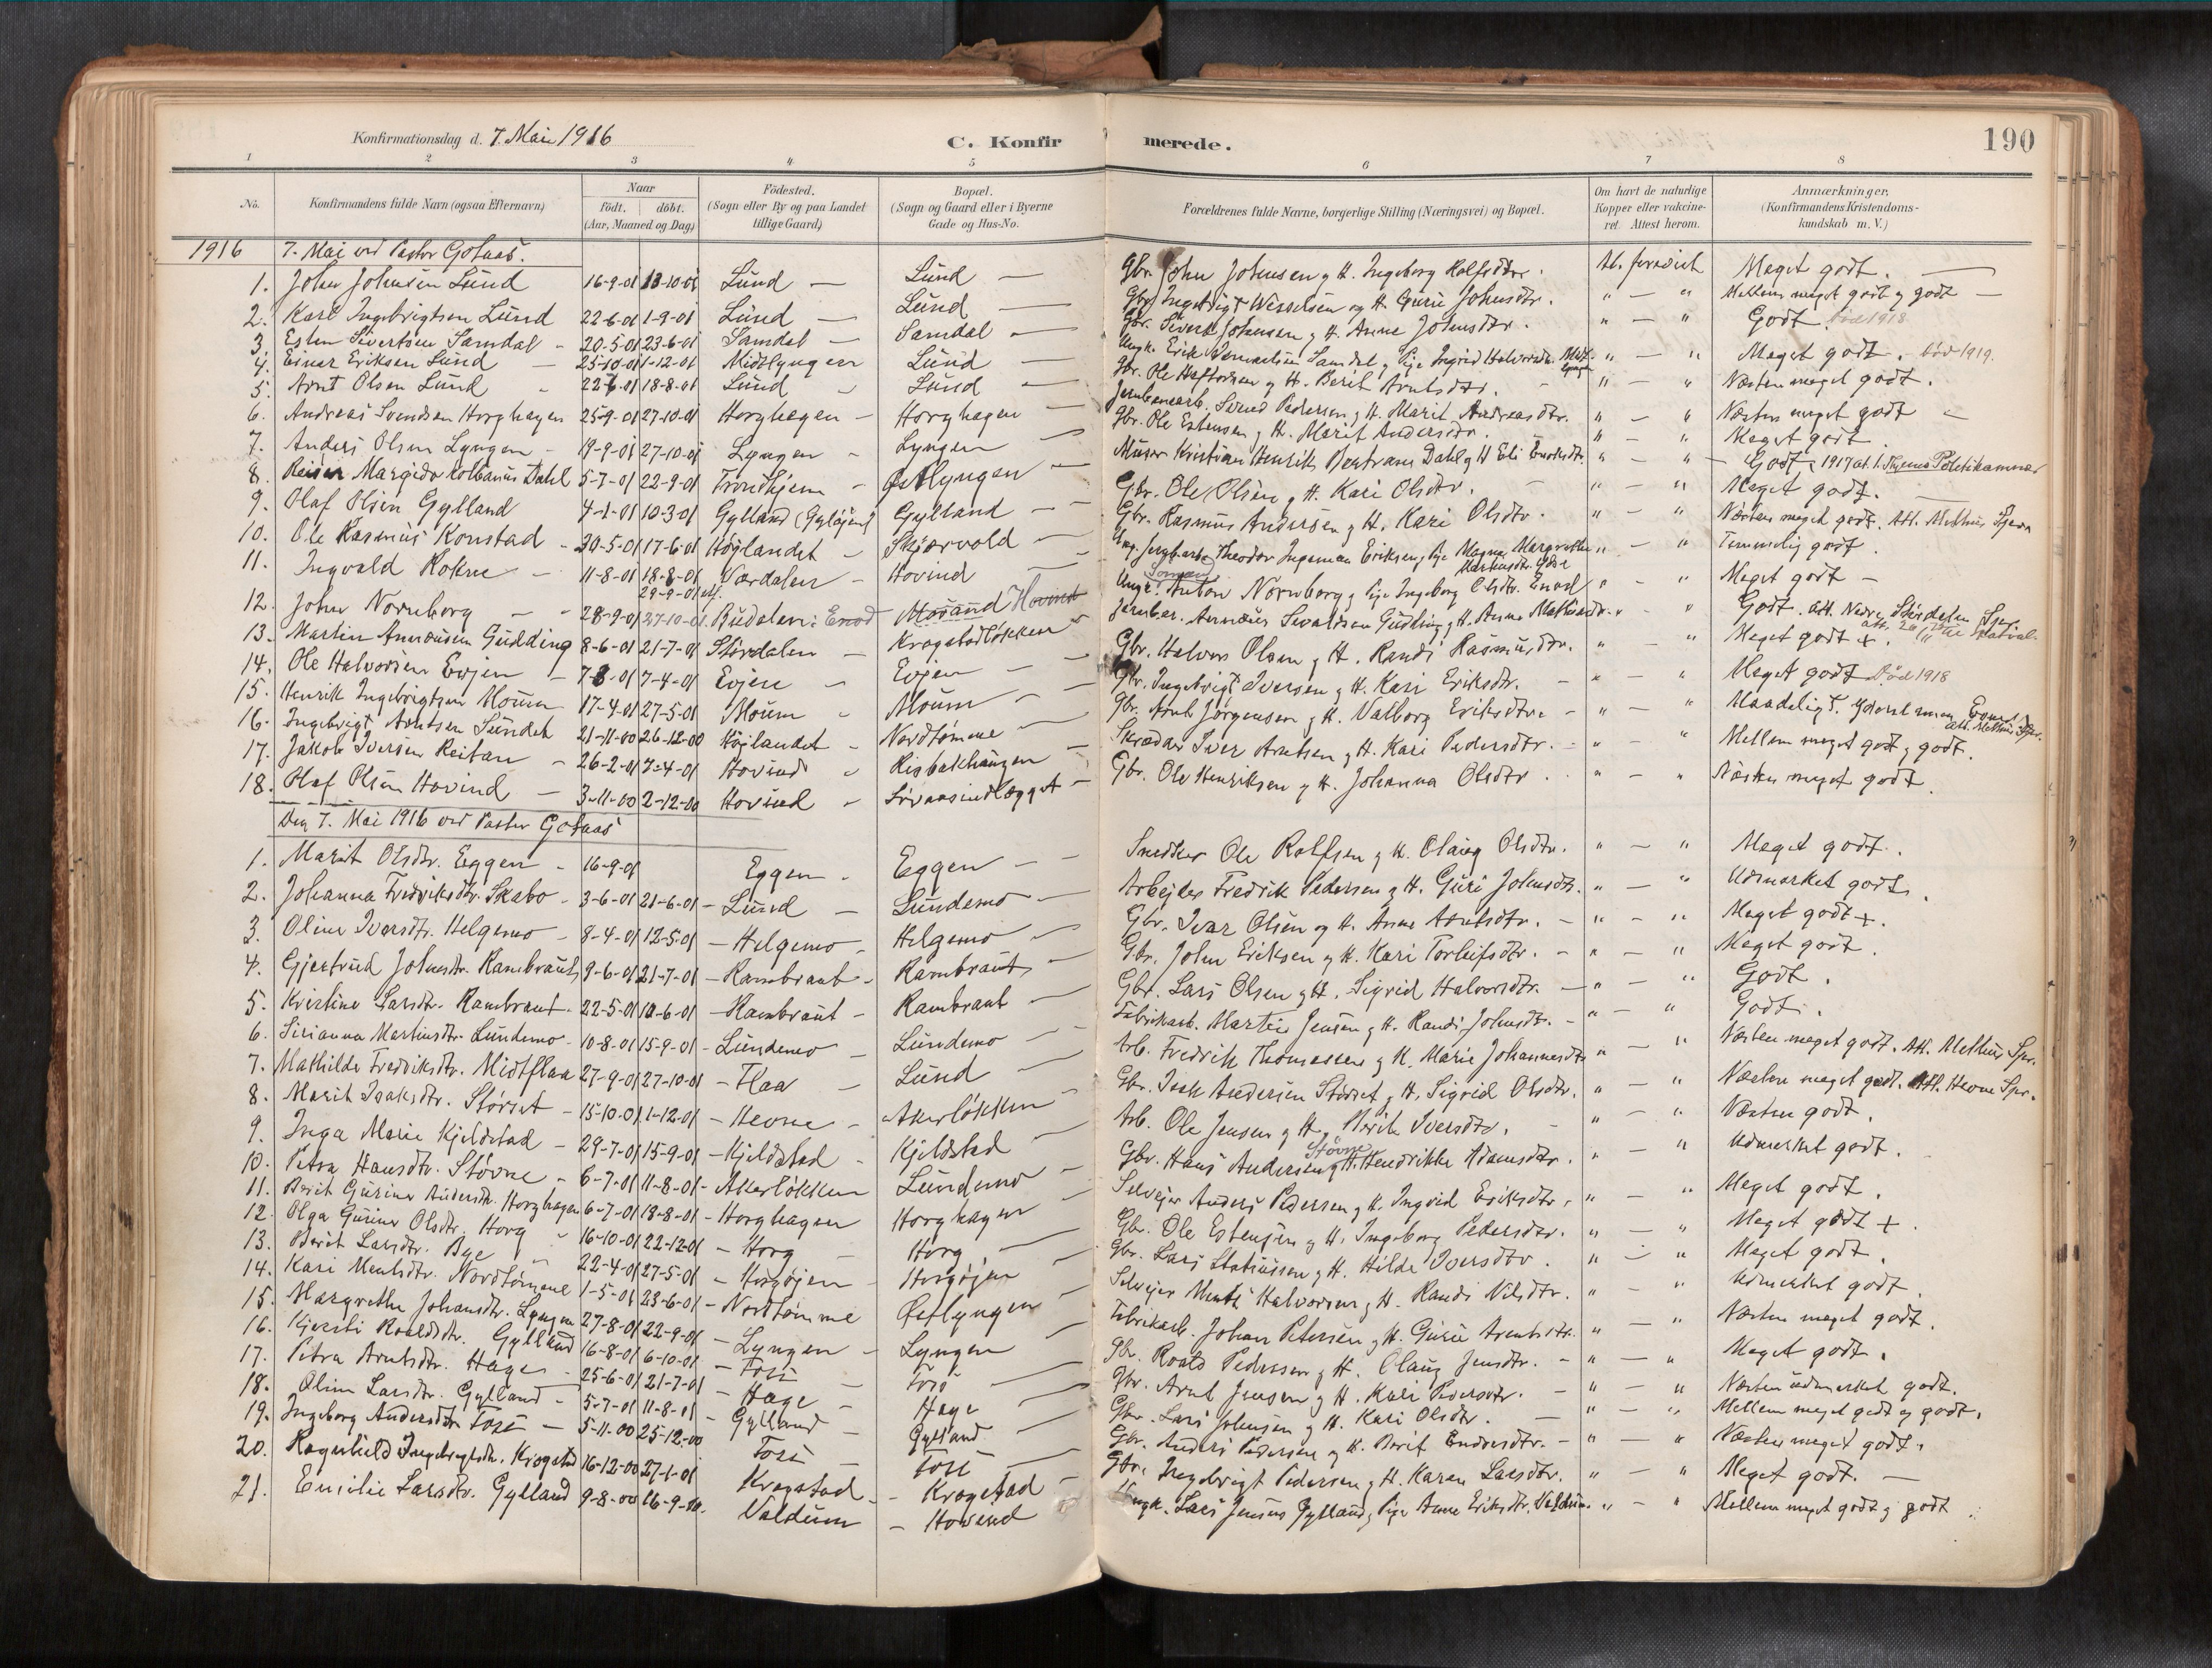 190
Konfirmationsdag d. 7. Mai 1916
C. Konfirmerede.
1 2 3 4 5 6 7 8
No. Konfirmandens fulde Navn (ogsaa Efternavn) Naar födt. döbt. (Aar, Maaned og Dag) Födested. (Sogn eller By og paa Landet tillige Gaard) Bopæl. (Sogn og Gaard eller i Byerne Gade og Hus-No. Forældrenes fulde Navne, borgerlige Stilling (Næringsvei) og Bopæl. Om havt de naturlige Kopper eller vakcineret. Attest herom. Anmærkninger. (Konfirmandens Kristendomskundskab m. V.)
1916 7. Mai ved Pastor Gotaas.
1. John Johnsen Lund 16-9-01 13-10-01 Lund — Lund — Gbr. John Johnsen g H. Ingeborg Rolfsdtr. At. forevist Meget godt. —
2. Karl Ingebrigtsen Lund 22-6-01 1-9-01 Lund — Lund — Gbr. Ingebrigt Wesselsen og H. Guru Johnsdtr. " — " Mellem meget godt og godt —
3. Esten Sivertsen Samdal - 20-5-01 23-6-01 Samdal — Samdal — Gbr. Sivert Johnsen g H. Anne Johnsdtr. " — " Godt. Död 1918
4. Einar Eriksen Lund — 25-10-01 1-12-01 Midtlyngen Lund Ungk. Erik Samdal g Pige Ingrid Halvorsdtr. Midtlyngen " — " Meget godt. död 1919.
5. Arnt Olsen Lund - 22-6-01 18-8-01 Lund - Lund — Gbr. Ole g H. Berit Arntsdtr. " — " Næsten meget godt.
6. Andreas Svendsen Horghagen 25-9-01 27-10-01 Horghagen — Horghagen — Jernbanearb. Svend Pedersen g H. Marit Andreasdtr. " — " Næsten meget godt -
7. Anders Olsen Lyngen - 19-9-01 27-10-01 Lyngen - Lyngen — Gbr. Ole Estensen g H. Marit Andersdtr. " — " Meget godt.
8. Reidar Margido Kolbanus Dahl 5-7-01 22-9-01 Trondhjem - Østlyngen — Murer Kristian Henrik Bertrans Dahl g H Eli " — " Godt, 1917 at. t. Politikammer
9. Olaf Olsen Gylland 4-1-01 10-3-01 Gylland (Gyløjen) Gylland — Gbr. Ole Olsen g H. Kari Olsdtr. " — " Meget godt. —
10. Ole Rasmus Konstad - 20-5-01 17-6-01 Höjlandet - Skjærvold — Gbr. Rasmus Andersen g H. Kari Olsdtr. " — " Næsten meget godt. Att. Melhus Spar.
11. Ingvald Rokne - 11-8-01 18-8-01 Værdalen - Hovind Theodor Ingeman Eriksen, Pige Magna Margrethe Markusdtr. " — " Temmelig godt.
12. John Nornberg — 28-9-01 29-9-01 27-10-01 Budalen: Enod Morand Hovind Ungk. Anton Nornborg g Pige Ingeborg Olsdtr. Enod " — " Meget godt —
13. Martin Arnousen Gudding 8-6-01 21-7-01 Stördalen - Krogstadlökken Jernbar. Sevaldsen Gudding g H. Anna " Godt. att. Nedre Stördalen Spar.
14. Ole Halvorsen Evjen - 7-3-01 7-4-01 Evjen - Evjen — Gbr. Halvor Olsen g H. Randi Rasmusdtr. " " Meget godt +.
15. Henrik Ingebrigtsen Moum 17-4-01 27-5-01 Moum - Moum — Gbr. Ingebrigt Iversen g H. Kari Eriksdtr. — " " Meget godt Död 1918
16. Ingebrigt Arntsen Sundet 21-11-00 26-12-00 Höjlandet - Nordtömme — Gbr. Arnt Jörgensen g H. Valborg Eriksdtr. - " — " Maadeligt. att. Melhus Spar.
17. Jakob Iversen Reitan - 26-2-01 7-4-01 Hovind - Risbakhaugen — Skrædder Iver Arntsen g H. Kari Pedersdtr. - " — " Mellem meget godt g godt.
18. Olaf Olsen Hovind — 3-11-00 2-12-00 Hovind - Sörvaasindlægget — Gbr. Ole Henriksen g H. Johanna Olsdtr. " — " Næsten meget godt.
Den 7. Mai 1916 ved Pastor Gotaas
1. Marit Olsdtr. Eggen - 16-9-01 Eggen - Eggen — Snedker Ole Rolfsen g H. Olaug Olsdtr. " — " Meget godt.
2. Johanna Fredriksdtr. Skabo - 3-6-01 21-6-01 - Lund — Lundemo — Arbejder Fredrik Pedersen g H. Guri Johnsdtr. " — " Udmærket godt.
3. Oline Iversdtr. Helgemo - 8-4-01 12-5-01 - Helgemo - Helgemo — Gbr. Ivar Olsen og H. Anne Arntsdtr. - " - " Meget godt +.
4. Gjertrud Johnsdtr. Rambraut 9-6-01 21-7-01 - Rambraut - Rambraut — Gbr. John Eriksen g H. Kari Torleifsdtr. - " — " Meget godt.
5. Kristine Larsdtr. Rambraut. 22-5-01 10-6-01 - Rambraut - Rambraut — Gbr. Lars Olsen g H. Sigrid Halvorsdtr. — " - " Godt.
6. Sirianna Martinsdtr. Lundemo - 10-8-01 15-9-01 - Lundemo — Lundemo — Fabrikarb. Martin Jensen g H. Randi Johnsdtr. - " — " Godt.
7. Mathilde Fredriksdtr. Midtflaa 27-9-01 27-10-01 - Flaa - Lund — Arb. Fredrik Thomassen g H. Marie Johannesdtr " — " Næsten meget godt. Att. Melhus Spr.
8. Marit Isaksdtr. Störset - 15-10-01 1-12-01 - Hevne - Akerlökken — Gbr. Isak Andersen Störset g H. Sigrid Olsdtr. " — " Næsten meget godt. Att. Hevne Spr.
9. Inga Marie Kjeldstad - 29-7-01 15-9-01 - Kjeldstad - Kjeldstad — Arb. Ole Jensen g H. Marit Iversdtr. - " — " Næsten godt.
10. Petra Hansdtr. Stövne - 6-7-01 11-8-01 - Akerlökken Lundemo — Gbr. Hans Andersen Stövne g H. Hendrikke Adamsdtr. " — " Udmærket godt.
11. Berit Gurine Andersdtr. Horghagen 6-7-01 18-8-01 - Horghagen Horghagen — Selvejer Anders Pedersen g H. Ingrid Eriksdtr. " — " Meget godt.
12. Olga Gurine Olsdtr. Horg - 16-10-01 22-12-01 - Horg - Horg. — Gbr. Ole Estensen g H. Ingeborg Pedersdtr. " — " Meget godt +.
13. Berit Larsdtr. Bye - 22-4-01 27-5-01 - Horgöjen - Horgöjen — Gbr. Lars Statiussen g H. Hilde Iversdtr. " — " Meget godt.
14. Kari Mentsdtr. Nordtömme 1-5-01 23-6-01 - Nordtömme Østlyngen — Selvejer Halvorsen g H. Randi Nilsdtr. " - " Udmærket godt.
15. Margrethe Johansdtr. Lyngen 27-8-01 22-9-01 - Lyngen - Lyngen — Fabrikarb. Johan Petersen g H. Guru Arentsdtr. " — " Næsten meget godt.
16. Kjersti Roaldsdtr. Gylland 16-8-01 6-10-01 - Foss — Foss — Gbr. Roald Pedersen g H. Olaug Jensdtr. - " — " Meget godt.
17. Petra Arntsdtr. Hage 25-6-01 21-7-01 - Hage - Hage — Gbr. Arnt Jensen g H. Kari Pedersdtr. - " — " Næsten udmærket godt.
18. Oline Larsdtr. Gylland - 5-7-01 11-8-01 - Gylland — Gylland — Gbr. Lars Johnsen g H. Kari Olsdtr. — " — " Mellem meget godt og godt.
19. Ingeborg Andersdtr. Foss — 5-11-00 25-12-00 Foss — Foss — Gbr. Anders Pedersen og H. Berit Endresdtr. - " — " Næsten meget godt.
20. Ragnhild Ingebrigtsdtr. Krogstad 16-12-00 27-1-01 Krogstad - Krogstad — Gbr. Ingebrigt Pedersen g H. Karen Larsdtr. " — " Meget godt. —
21. Emilie Larsdtr. Gylland 9-8-00 16-9-00. Valdum - Hovind Ungk. Lars Jensen Gylland, Pige Anne Eriksdtr. Valdum. " — " Mellem meget godt g godt